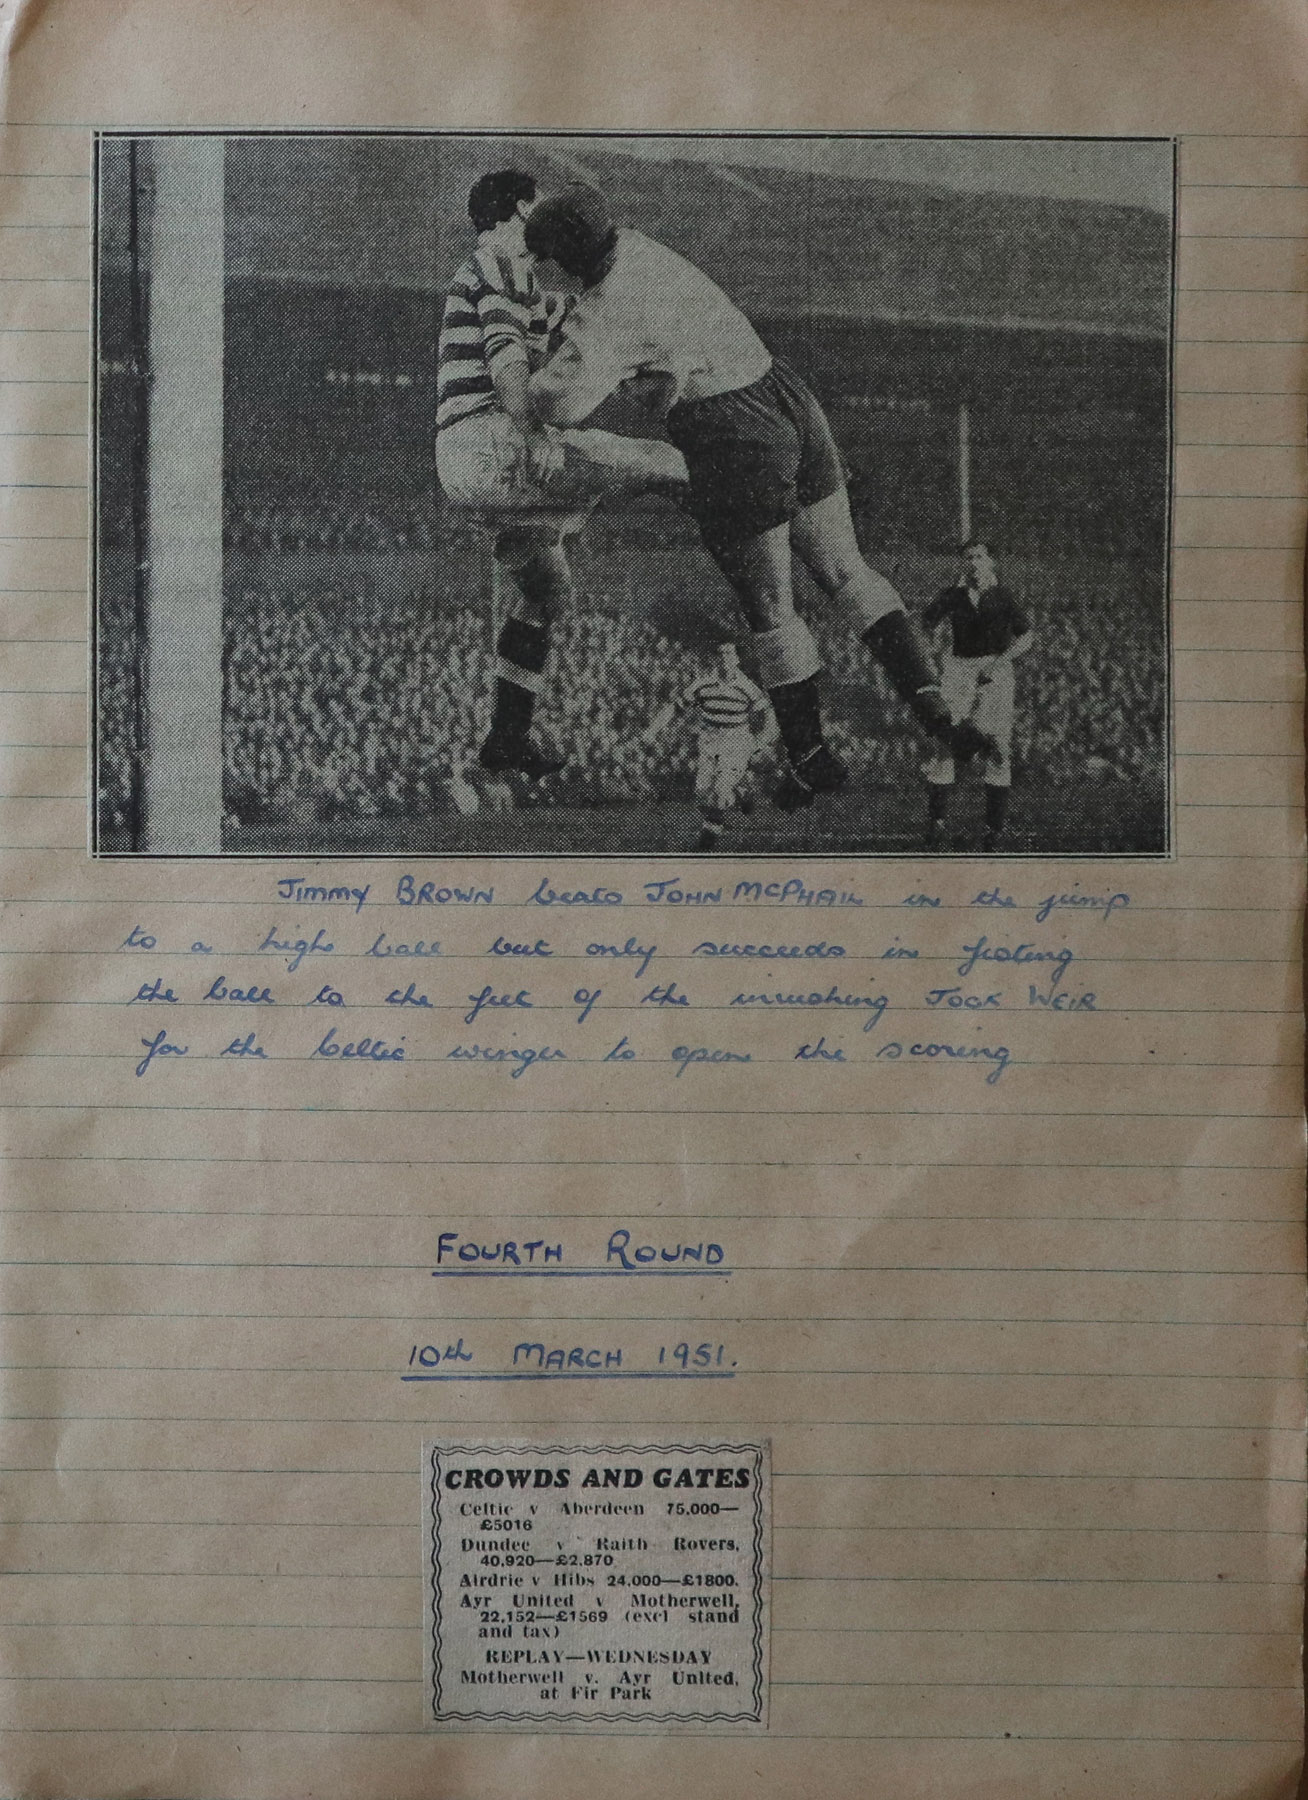 Jimmy BROWN beats JOHN MCPHAIL in the jump
to a high ball but only succeeds in fisting
the ball to the feet of the inrushing JOCK WEIR
for the Celtic winger to open the scoring
FOURTH ROUND
10th MARCH 1951.
CROWDS AND GATES
Celtic v Aberdeen 75,000—
£5016
Dundee v Raith Rovers,
40,920—£2,870
Airdrie v Hibs 24,000—£1800.
Ayr United v Motherwell,
22,152—£1569 (excl stand
and tax)
REPLAY—WEDNESDAY
Motherwell v. Ayr United,
at Fir Park